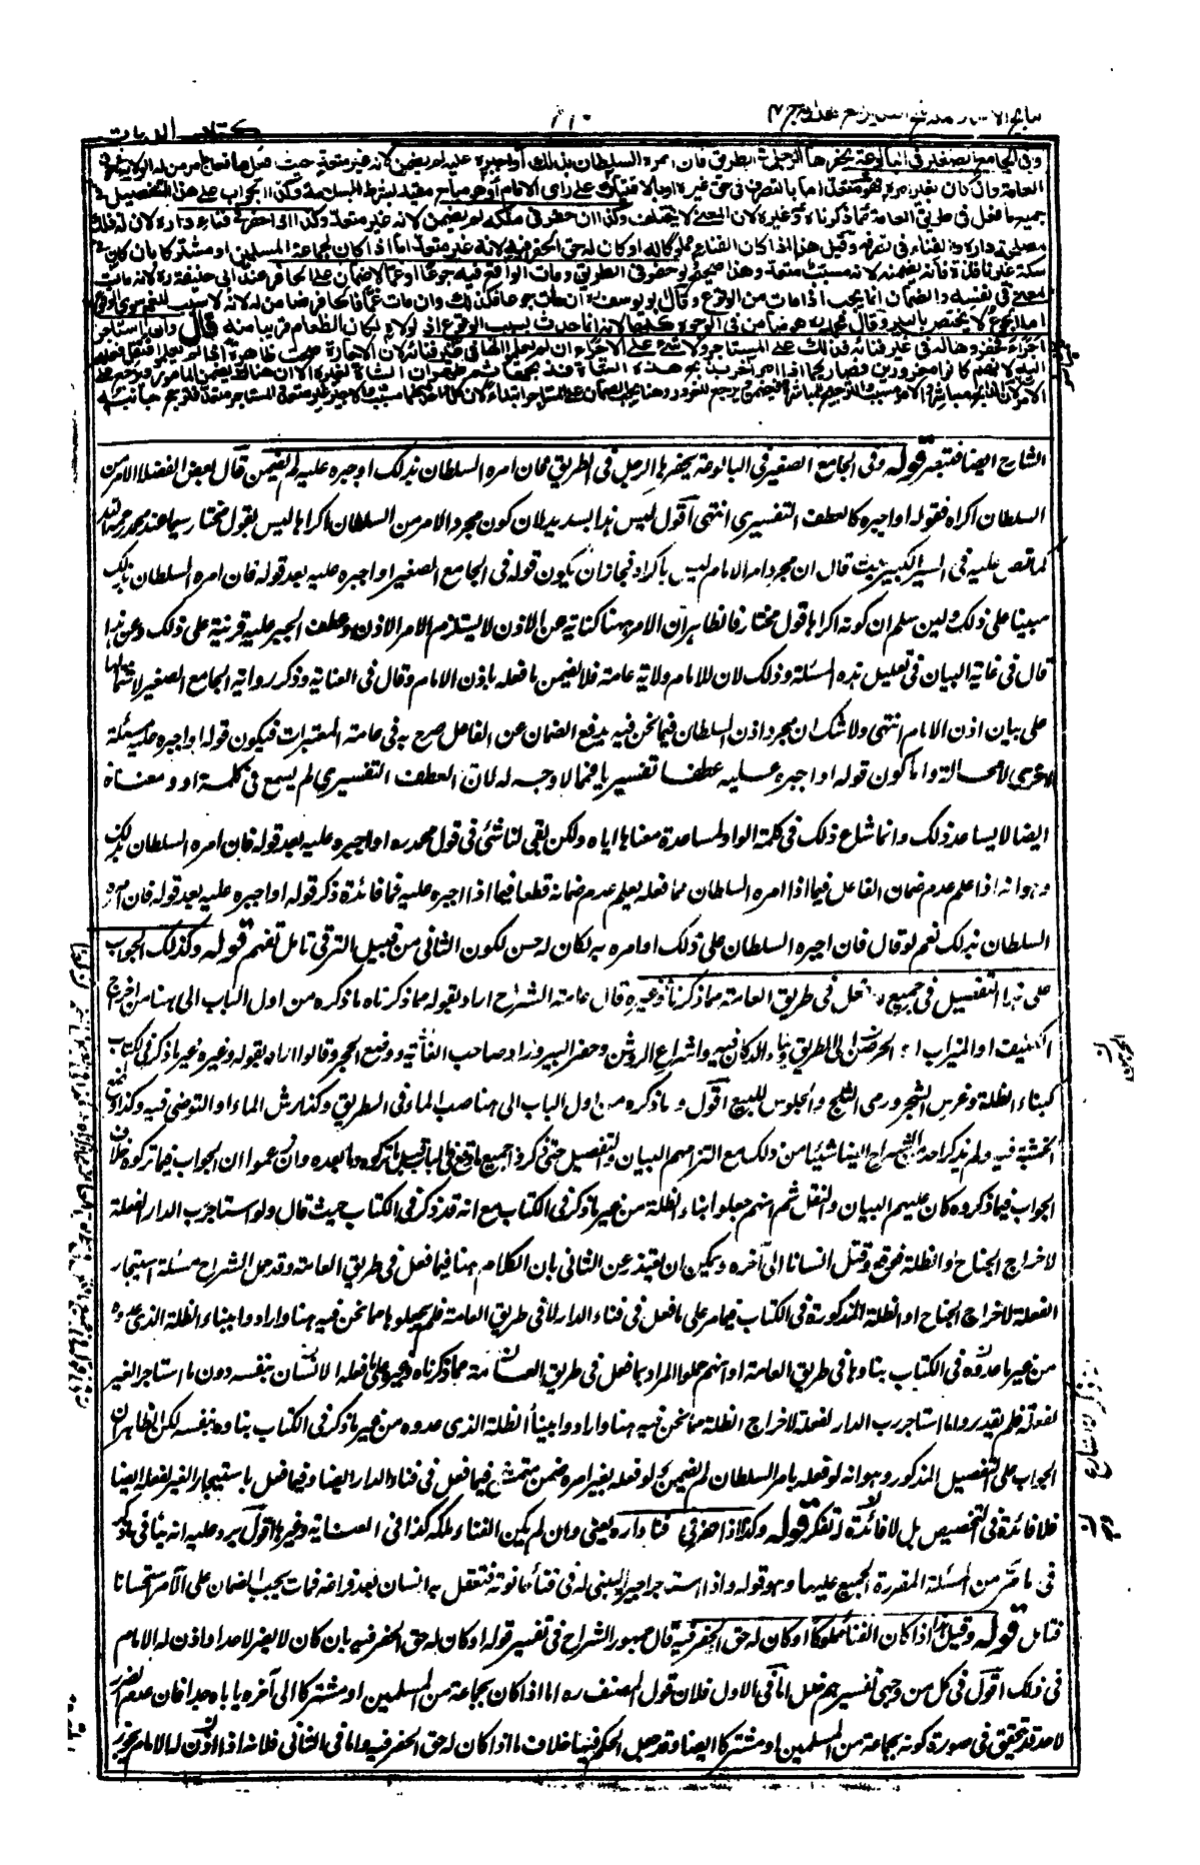 كتاب الديات
وفى الجامع الصغير فى البالوعة يحفرها الرجل فى الطريق فان امره السلطان بذلك او اجبره عليه لم يضمن لانه غير متعد حيث فعل ما فعل بامر من له الولاية فى حقوق
العامة وان كان بغير امره فهو متعد اما بالتصرف فى حق غيره او بالافتيات على راى الامام او هو مباح مقيد بشرط السلامة وكذا الجواب على هذا التفصيل فى
جميع ما فعل فى طريق العامة مما ذكرناه وغيره لان المعنى لا يختلف وكذا ان حفره فى ملكه لم يضمن لانه غير متعد وكذا اذا حفره فى فناء داره لان له ذلك
لمصلحة داره والفناء فى تصرفه وقيل هذا اذا كان الفناء مملوكا له او كان له حق الحفر فيه لانه غير متعد اما اذا كان لجماعة المسلمين او مشتركا بان كان فى
سكة غير نافذة فانه يضمنه لانه مسبب متعد وهذا صحيح ولو حفر فى الطريق ومات الواقع فيه جوعا او غما لا ضمان على الحافر عند ابى حنيفة ره لانه مات
لمعنى فى نفسه والضمان انما يجب اذا مات من الوقوع وقال ابو يوسف ره ان مات جوعا فكذلك وان مات غما فالحافر ضامن له لانه لا سبب للغم سوى الوقوع
اما الجوع لا يختص بالبير وقال محمد ره هو ضامن فى الوجوه كلها لانه انما حدث بسبب الوقوع اذ لولاه لكان الطعام قريبا منه قال وان استاجر
اجراء فحفروها له فى غير فنائه فذلك على المستاجر ولا شئ على الاجراء ان لم يعلموا انها فى غير فنائه لان الاجارة صحت ظاهرة اذا لم يعلموا فنقل فعلهم
الشارح ايضا فتبصر قوله وفى الجامع الصغير فى البالوعة يحفرها الرجل فى الطريق فان امره السلطان بذلك او اجبره عليه لم يضمن قال بعض الفضلاء الامر من
السلطان اكراه فقوله او اجبره كالعطف التفسيرى انتهى اقول ليس هذا بسديد لان كون مجرد الامر من السلطان اكراها ليس بقول مختار سيما عند محمد رحمه الله
كما نص عليه فى السير الكبير حيث قال ان مجرد امر الامام ليس باكراه فجاز ان يكون قوله فى الجامع الصغير او اجبره عليه بعد قوله فان امره السلطان بذلك
مبنيا على ذلك ولئن سلم ان كونه اكراها قول مختار فالظاهر ان الامر ههنا كناية عن الاذن لا يستلزم الامر الاذن وعطف الجبر عليه قرينة على ذلك وعن هذا
قال فى غاية البيان فى تعليل هذه المسئلة وذلك لان للامام ولاية عامة فلا يضمن ما فعله باذن الامام وقال فى العناية وذكر رواية الجامع الصغير لاشتمالها
على بيان اذن الامام انتهى ولا شك ان مجرد اذن السلطان فيما نحن فيه يدفع الضمان عن الفاعل صرح به فى عامة المعتبرات فيكون قوله او اجبره عليه مسئلة
اخرى لا محالة واما كون قوله او اجبره عليه عطفا تفسيريا فمما لا وجه له لان العطف التفسيرى لم يسمع فى كلمة او ومعناه
ايضا لا يساعد ذلك وانما شاع ذلك فى كلمة الواو لمساعدة معناها اياه ولكن بقى لنا شئ فى قول محمد ره او اجبره عليه بعد قوله فان امره السلطان بذلك
وهو انه اذا علم عدم ضمان الفاعل فيما اذا امره السلطان مما فعله يعلم عدم ضمانه قطعا فيما اذا اجبره عليه فما فائدة ذكر قوله او اجبره عليه بعد قوله فان امره
السلطان بذلك نعم لو قال فان اجبره السلطان على ذلك او امره به لكان له حسن لكون الثانى من قبيل الترقى تامل تفهم قوله وكذلك الجواب
على هذا التفصيل فى جميع ما فعل فى طريق العامة مما ذكرناه وغيره قال عامة الشراح اراد بقوله مما ذكرناه ما ذكره من اول الباب الى هنا من اخراج
الكنيف او الميزاب او الجرصن الى الطريق وبناء الدكان فيه واشراع الروشن وحفر البير وزاد صاحب الغاية ووضع الحجر وقالوا اراد بقوله وغيره غير ما ذكر فى الكتاب
كبناء الظلة وغرس الشجر ورمى الثلج والجلوس للبيع اقول وما ذكره من اول الباب الى هنا صب الماء فى الطريق وكذا رش الماء او التوضى فيه وكذا وضع
الخشبة فيه ولم يذكر احد من الشراح ههنا شيئا من ذلك مع التزامهم البيان والتفصيل حتى ذكروا جميع ما وقع فى الباب قبل ما تركوه وما بعده وان زعموا ان الجواب فيما تركوه خلاف
الجواب فيما ذكروه كان عليهم البيان والنقل ثم انهم جعلوا بناء الظلة من غير ما ذكر فى الكتاب مع انه قد ذكر فى الكتاب حيث قال ولو استاجر رب الدار الفعلة
لاخراج الجناح او الظلة فوقع وقتل انسانا الى آخره ويمكن ان يعتذر عن الثانى بان الكلام ههنا فيما فعل فى طريق العامة وقد حمل الشراح مسئلة استيجار
الفعلة لاخراج الجناح او الظلة المذكورة فى الكتاب فيما مر على ما فعل فى فناء الدار لا فى طريق العامة فلم يجعلوها مما نحن فيه هنا وارادوا ببناء الظلة الذى عدوه
من غير ما عدوه فى الكتاب بناءها فى طريق العامة او انهم حملوا المراد بما فعل فى طريق العامة مما ذكرناه وغيره على ما فعله الانسان بنفسه دون ما استاجر الغير
لفعله فلم يعدوا ما استاجر رب الدار الفعلة لاخراج الظلة مما نحن فيه هنا وارادوا ببناء الظلة الذى عدوه من غير ما ذكر فى الكتاب بناءه بنفسه لكن الظاهر ان
الجواب على التفصيل المذكور وهو انه لو فعله بامر السلطان لم يضمن ولو فعله بغير امره ضمن متمش فيما فعل فى فناء الدار ايضا وفيما فعل باستيجار الغير لفعله ايضا
فلا فائدة فى التخصيص بل لا فائدة له تفكر قوله وكذا اذا حفره فى فناء داره يعنى وان لم يكن الفناء ملكه كذا فى العناية وغيرها اقول يرد عليه انه ينافى ما ذكر
فى ما مر من المسئلة المقررة المجمع عليها وهو قوله واذا استاجر اجيرا ليبنى له فى فناء حانوته فتعقل به انسان بعد فراغه فمات يجب الضمان على الآمر استحسانا
فتامل قوله وقيل هذا اذا كان الفناء مملوكا او كان له حق الحفر فيه قال جمهور الشراح فى تفسير قوله او كان له حق الحفر فيه بان كان لا يضر لاحد او اذن له الامام
فى ذلك اقول فى كل من وجهى تفسيرهم خلل اما فى الاول فلان قول المصنف ره اما اذا كان لجماعة من المسلمين او مشتركا الى آخره ياباه جدا فان عدم الضرر
لاحد قد يتحقق فى صورة كونه لجماعة من المسلمين او مشتركا ايضا وقد جعل الحكم فيها خلاف ما اذا كان له حق الحفر فيه واما فى الثانى فلانه اذا اذن له الامام يجوز